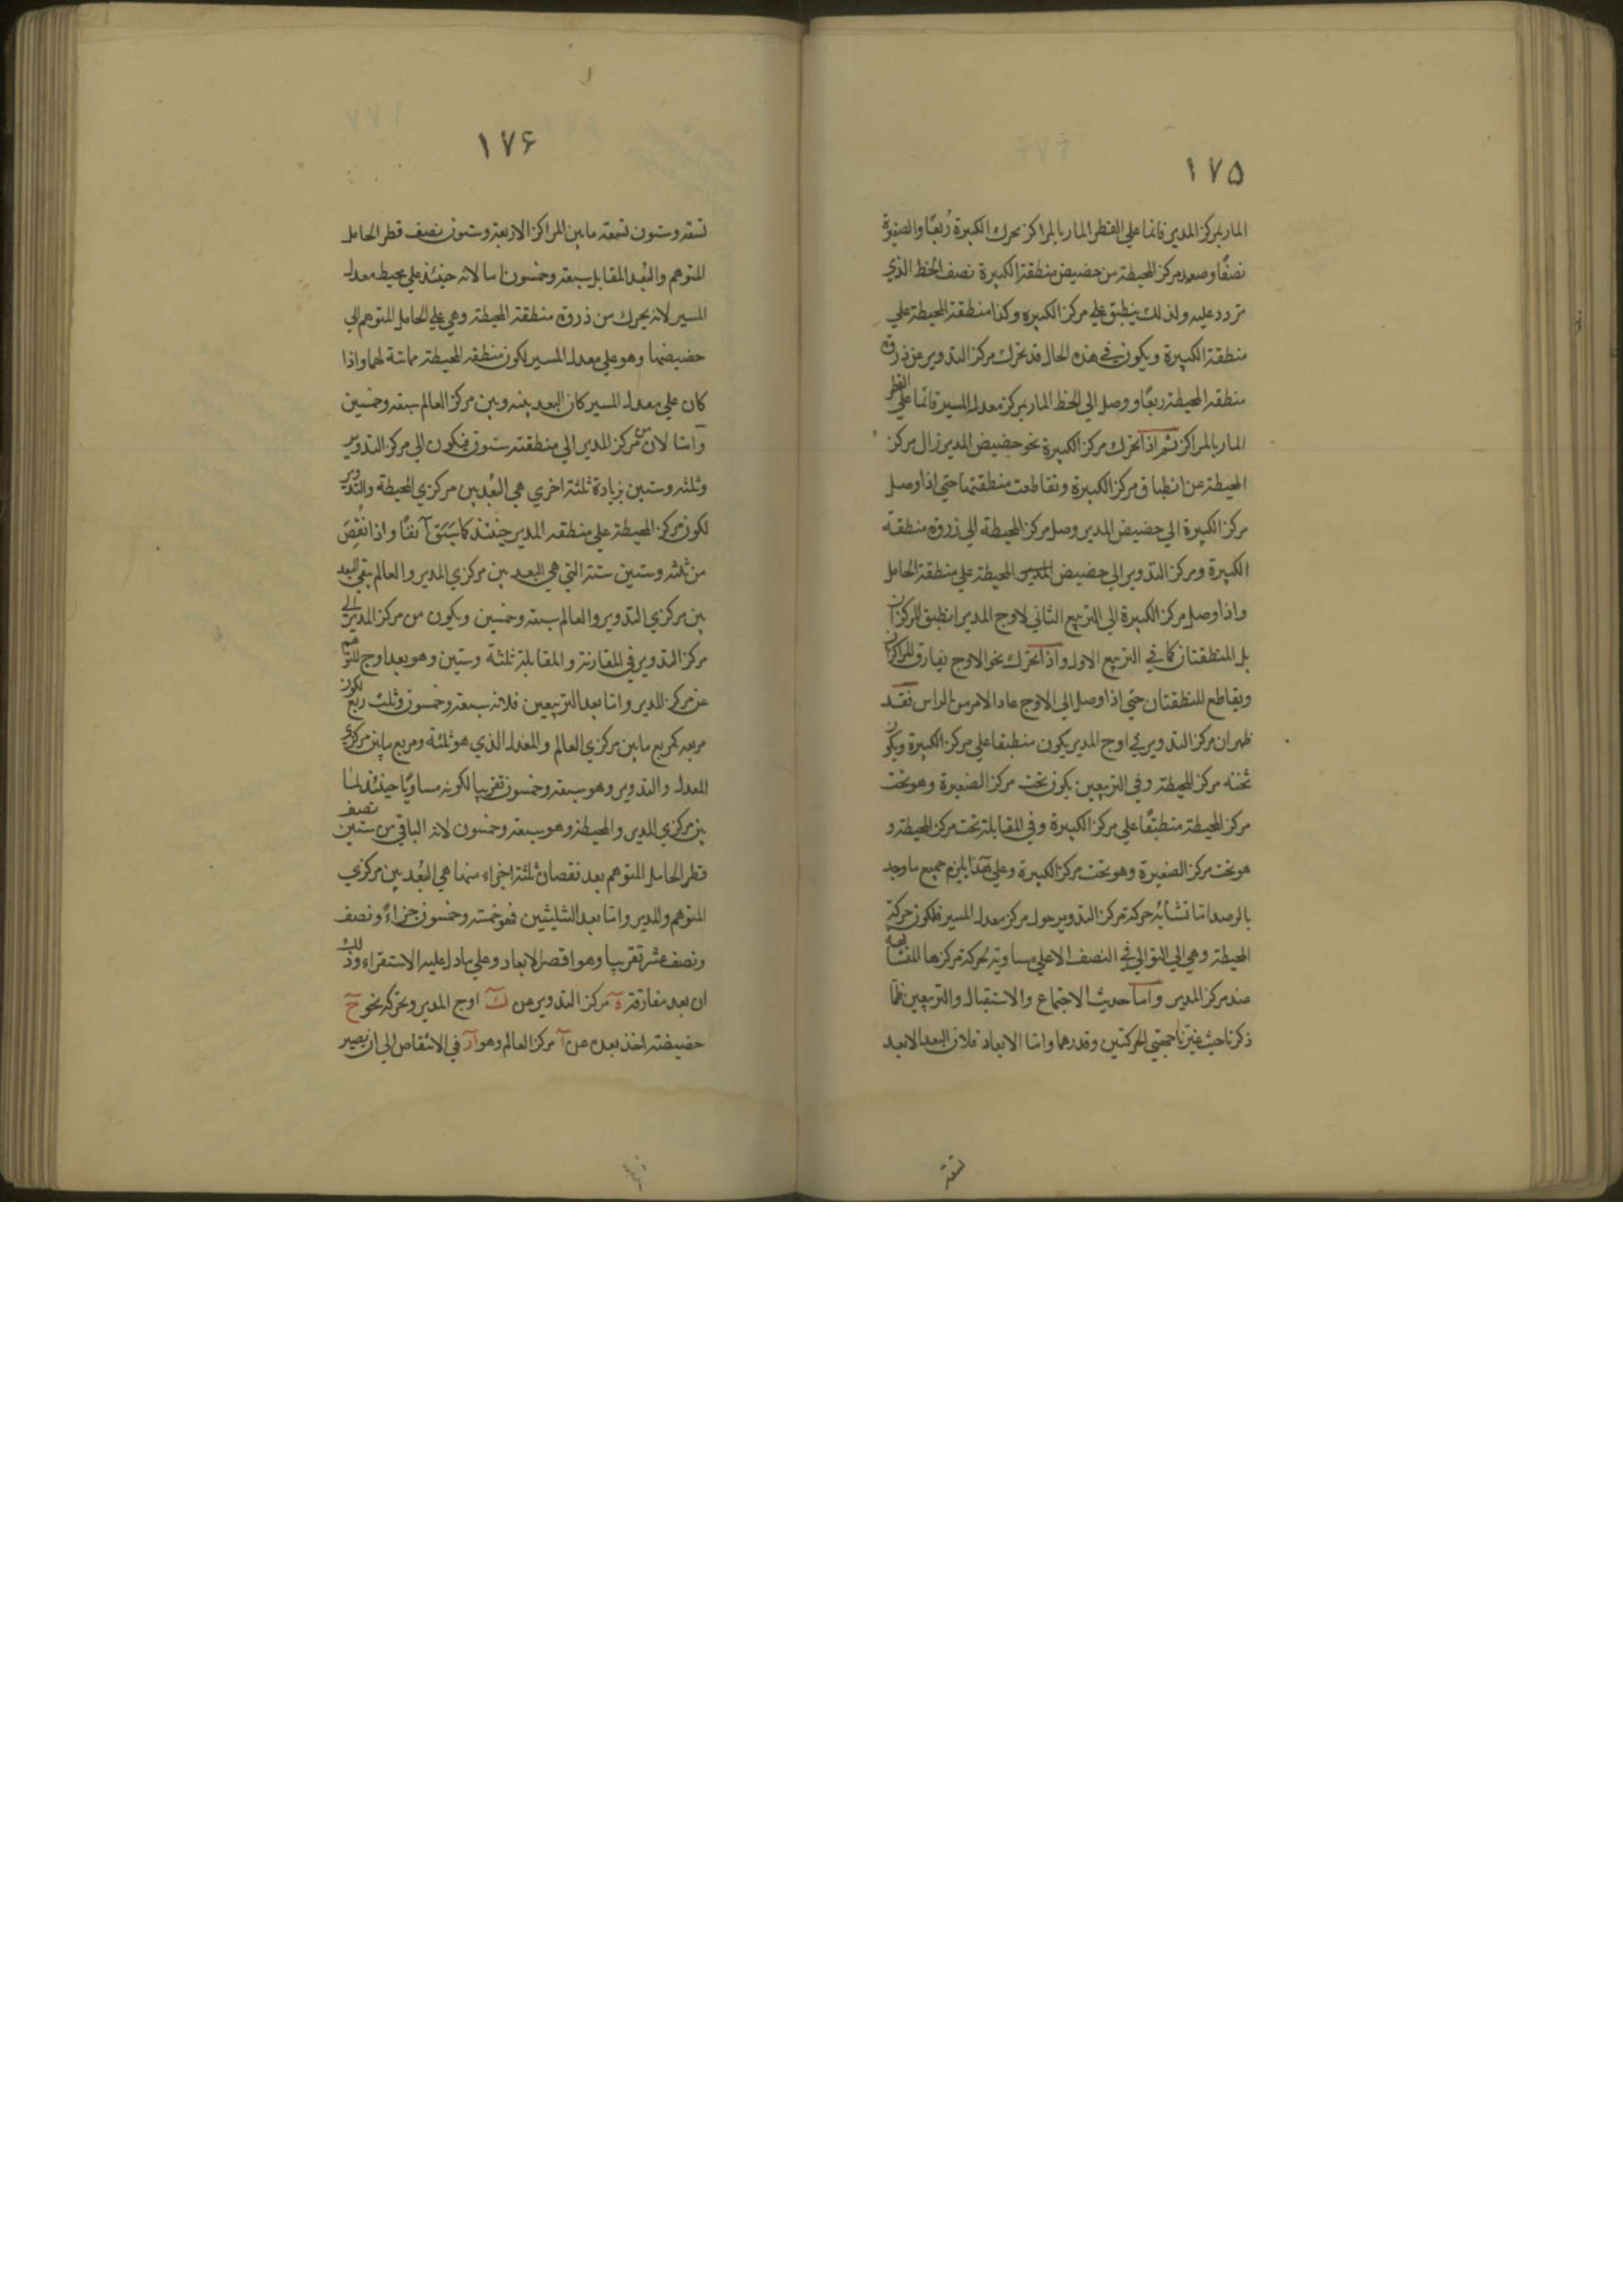 ١٧٥
المار بمركز المدير قائما على القطر المار بالمراكز تحرك الكبيرة رُبعًا والصغيرة
نصفًا وصعد مركز المحيطة من حضيض منطقة الكبيرة نصف الخط الذي
تردد عليه ولذلك ينطبق على مركز الكبيرة وكذا منطقة المحيطة علي
منطقة الكبيرة ويكون في هذه الحال قد تحرك مركز التدوير عن ذروة
منطقة المحيطة ربعًا ووصل الي الخط المار بمركز معدل المسير قائما علي القطر
المار بالمراكز ثم اذا تحرك مركز الكبيرة نحو حضيض المدير زال مركز
المحيطة عن انطباق مركز الكبيرة وتقاطعت منطقتهما حتي اذا وصل
مركز الكبيرة الي حضيض المدير وصل مركز المحيطة الي ذروة منطقة
الكبيرة ومركز التدوير الي حضيض المدير المحيطة علي منطقة الحامل
واذا وصل مركز الكبيرة الي التربيع الثاني لاوج المدير انطبق المركزان
بل المنطقتان كما في التربيع الاول واذا تحرك نحو الاوج يفارق المركزان
ويقاطع المنطقتان حتي اذا وصل الي الاوج عاد الامر من الراس فقد
ظهر ان مركز التدوير في اوج المدير يكون منطبقا علي مركز الكبيرة ويكون
تحته مركز المحيطة وفي التربيعين يكون تحت مركز الصغيرة وهو تحت
مركز المحيطة منطبقًا علي مركز الكبيرة وفي المقابلة تحت مركز المحيطة و
هو تحت مركز الصغيرة وهو تحت مركز الكبيرة وعلي هذا يلزم جميع ما وجد
بالرصد اما تشابُه حركة مركز التدوير حول مركز معدل المسير فلكون حركة
المحيطة وهي الي التوالي في النصف الاعلي مساوية لحركة مركزها المتشابهة
عند مركز المدير واما حديث الاجتماع والاستقبال والتربيعين فلما
ذكرنا حيث عيّنّا جهتي الحركتين وقدرهما واما الابعاد فلان البعد الابعد
تسعة
١٧۶
تسعة وستون تسعة ما بين المراكز الاربعة وستون نصف قطر الحامل
المتوهم والبُعد المقابل سبعة وخمسون اما لانه حينئذ علي محيط معدل
المسير لانه يحرك من ذروة منطقة المحيطة وهي علي الحامل المتوهم الي
حضيضها وهو علي معدل المسير لكون منطقة المحيطة مماسّة لهما واذا
كان علي معدل المسير كان البعد بينه وبين مركز العالم سبعة وخمسين
واما لان من مركز المدير الي منطقته ستون فيكون الي مركز التدوير
وثلثه وستين بزيادة ثلثة اخري هي البُعد بين مركزي المحيطة والتدوير
لكون مركز المحيطة علي منطقه المدير حينئذ كما سَبَق آنفًا واذا نُقِصَ
من ثلثه وستين ستة التي هي البعد بين مركزي المدير والعالم بقي البعد
بين مركزي التدوير والعالم سبعة وخمسين ويكون من مركز المدير الي
مركز التدوير في المقارنة والمقابلة ثلثة وستين وهو بعد اوج المتوهم
عن مركز المدير واما بعد التربيعين فلانه سبعة وخمسون وثلث ربع لكون
مربعه كمربع ما بين مركزي العالم والمعدل الذي هو ثلثة ومربع ما بين مركزي
المعدل والتدوير وهو سبعة وخمسون تقريبا لكونه مساويًا حينئذ لما
بين مركزي المدير والمحيطة وهو سبعة وخمسون لانه الباقي من ستين نصف
قطر الحامل المتوهم بعد نقصان ثلثة اجزاء منها هي البُعد بين مركزي
المتوهم والمدير واما بعد التثليثين فهو خمسة وخمسون جزاءً ونصف
ونصف عشر تقريبا وهو اقصر الابعاد وعلي ما دل عليه الاستقراء وذلك
ان بعد مفارقة ه مركز التدوير عن ك اوج المدير وتحركه نحو ح
حضيضه اخذ بعده عن آ مركز العالم وهو آر في الانتقاص الي ان يصير